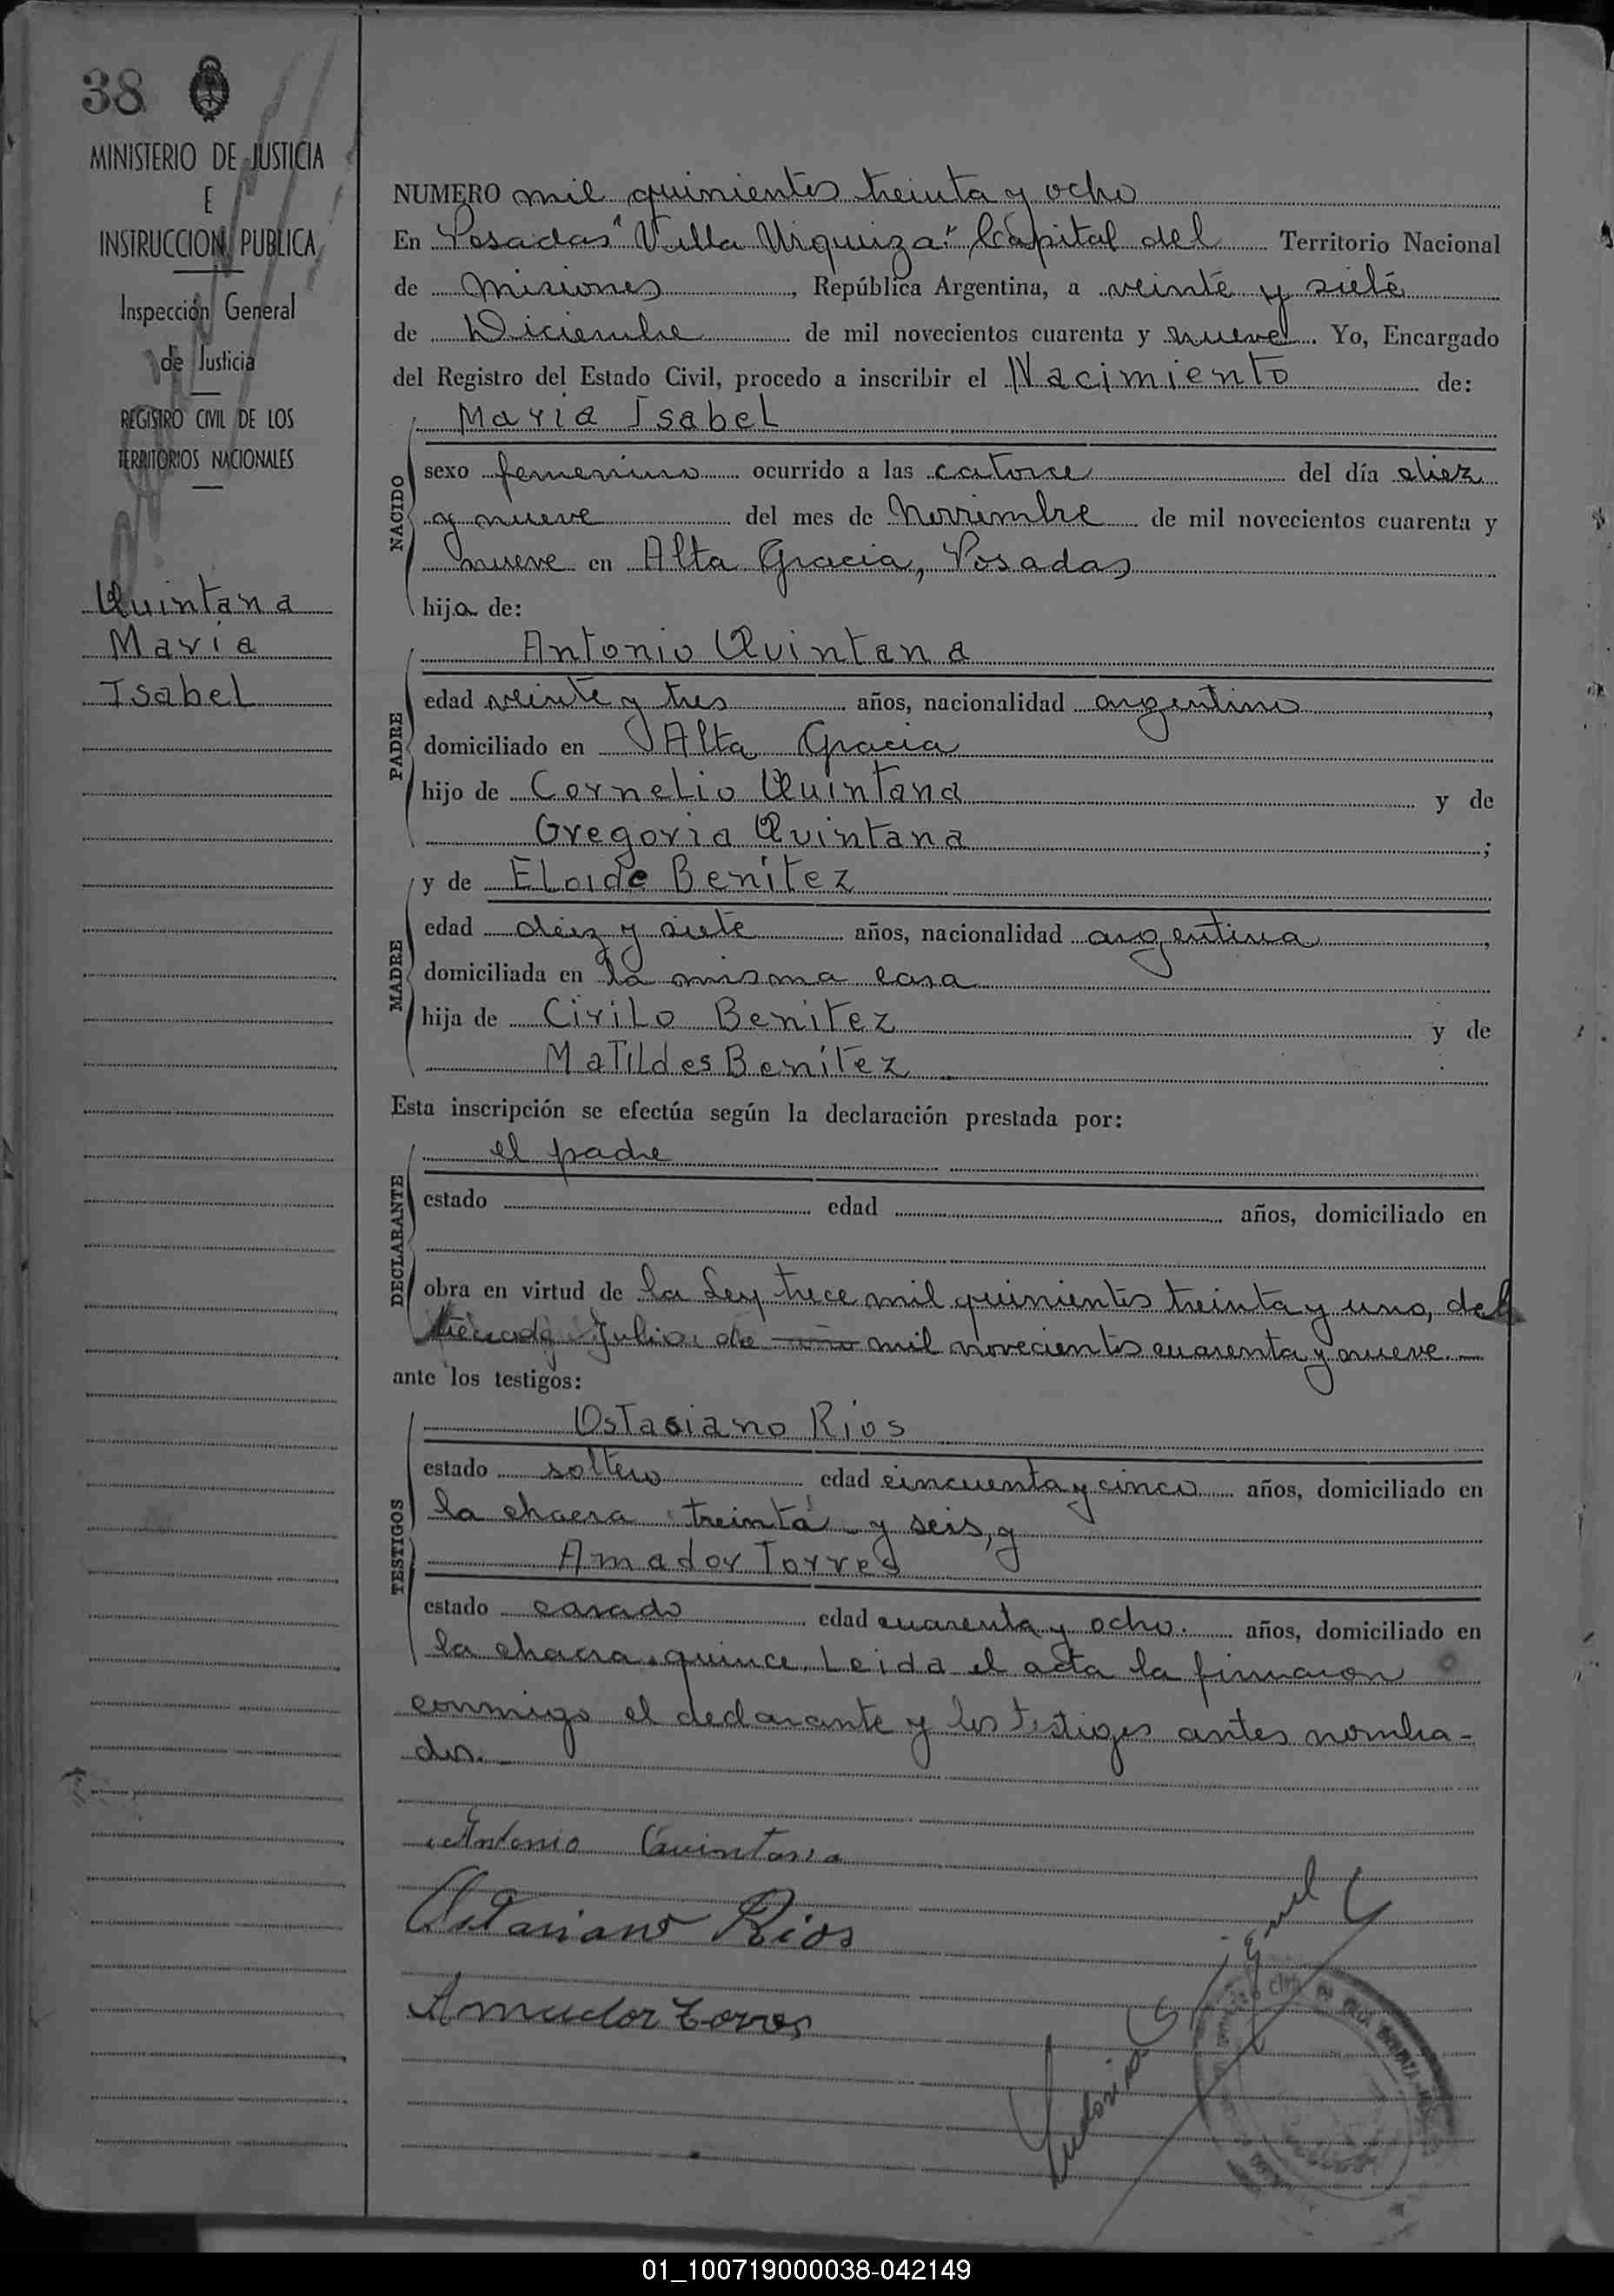 38
MINISTERIO DE JUSTICIA
E
INSTRUCCION PUBLICA
Inspección General
de Justicia
REGISTRO CIVIL DE LOS
TERRITORIOS NACIONALES
Quintana
Maria
Isabel
NUMERO mil quinientos treinta y ocho
En Posadas "Villa Urquiza" Capital del Territorio Nacional
de Misiones, República Argentina, a veinte y siete
de Diciembre de mil novecientos cuarenta y nueve. Yo, Encargado
del Registro del Estado Civil, procedo a inscribir el Nacimiento de:
Maria Isabel
NACIDO
sexo femenino ocurrido a las catorce del día diez
y nueve del mes de Noviembre de mil novecientos cuarenta y
nueve en Alta Gracia, Posadas
hija de:
Antonio Quintana
PADRE
edad veinte y tres años, nacionalidad argentino,
domiciliado en Alta Gracia
hijo de Cornelio Quintana y de
Gregoria Quintana;
y de Eloide Benítez
MADRE
edad diez y siete años, nacionalidad argentina,
domiciliada en la misma casa
hija de Cirilo Benitez y de
Matildes Benítez
Esta inscripción se efectúa según la declaración prestada por:
el padre
DECLARANTE
estado edad años, domiciliado en
obra en virtud de la Ley trece mil quinientos treinta y uno, del
Julio de mil novecientos cuarenta y nueve.—
ante los testigos:
Ostaciano Rios
TESTIGOS
estado soltero edad cincuenta y cinco años, domiciliado en
la chacra treinta y seis, y
Amador Torres
estado casado edad cuarenta y ocho. años, domiciliado en
la chacra quince. Leida el acta la firmaron
conmigo el declarante y los testigos antes nombra-
dos.
Antonio Quintana
Rios
Amador Torres
01_100719000038-042149